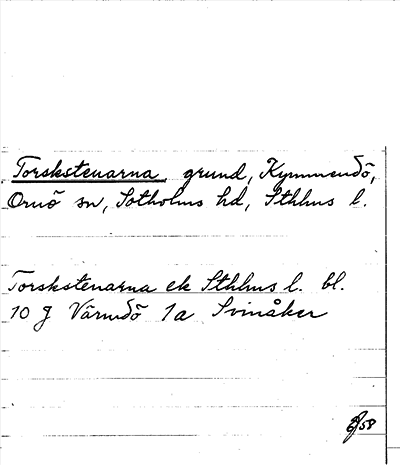 Torskstenarna, grund, Kymmendö,
Ornö sn, Sotholms hd, Sthlms l.
Torskstenarna ek Sthlms l. bl.
10 J Värmdö 1a Svinåker
58